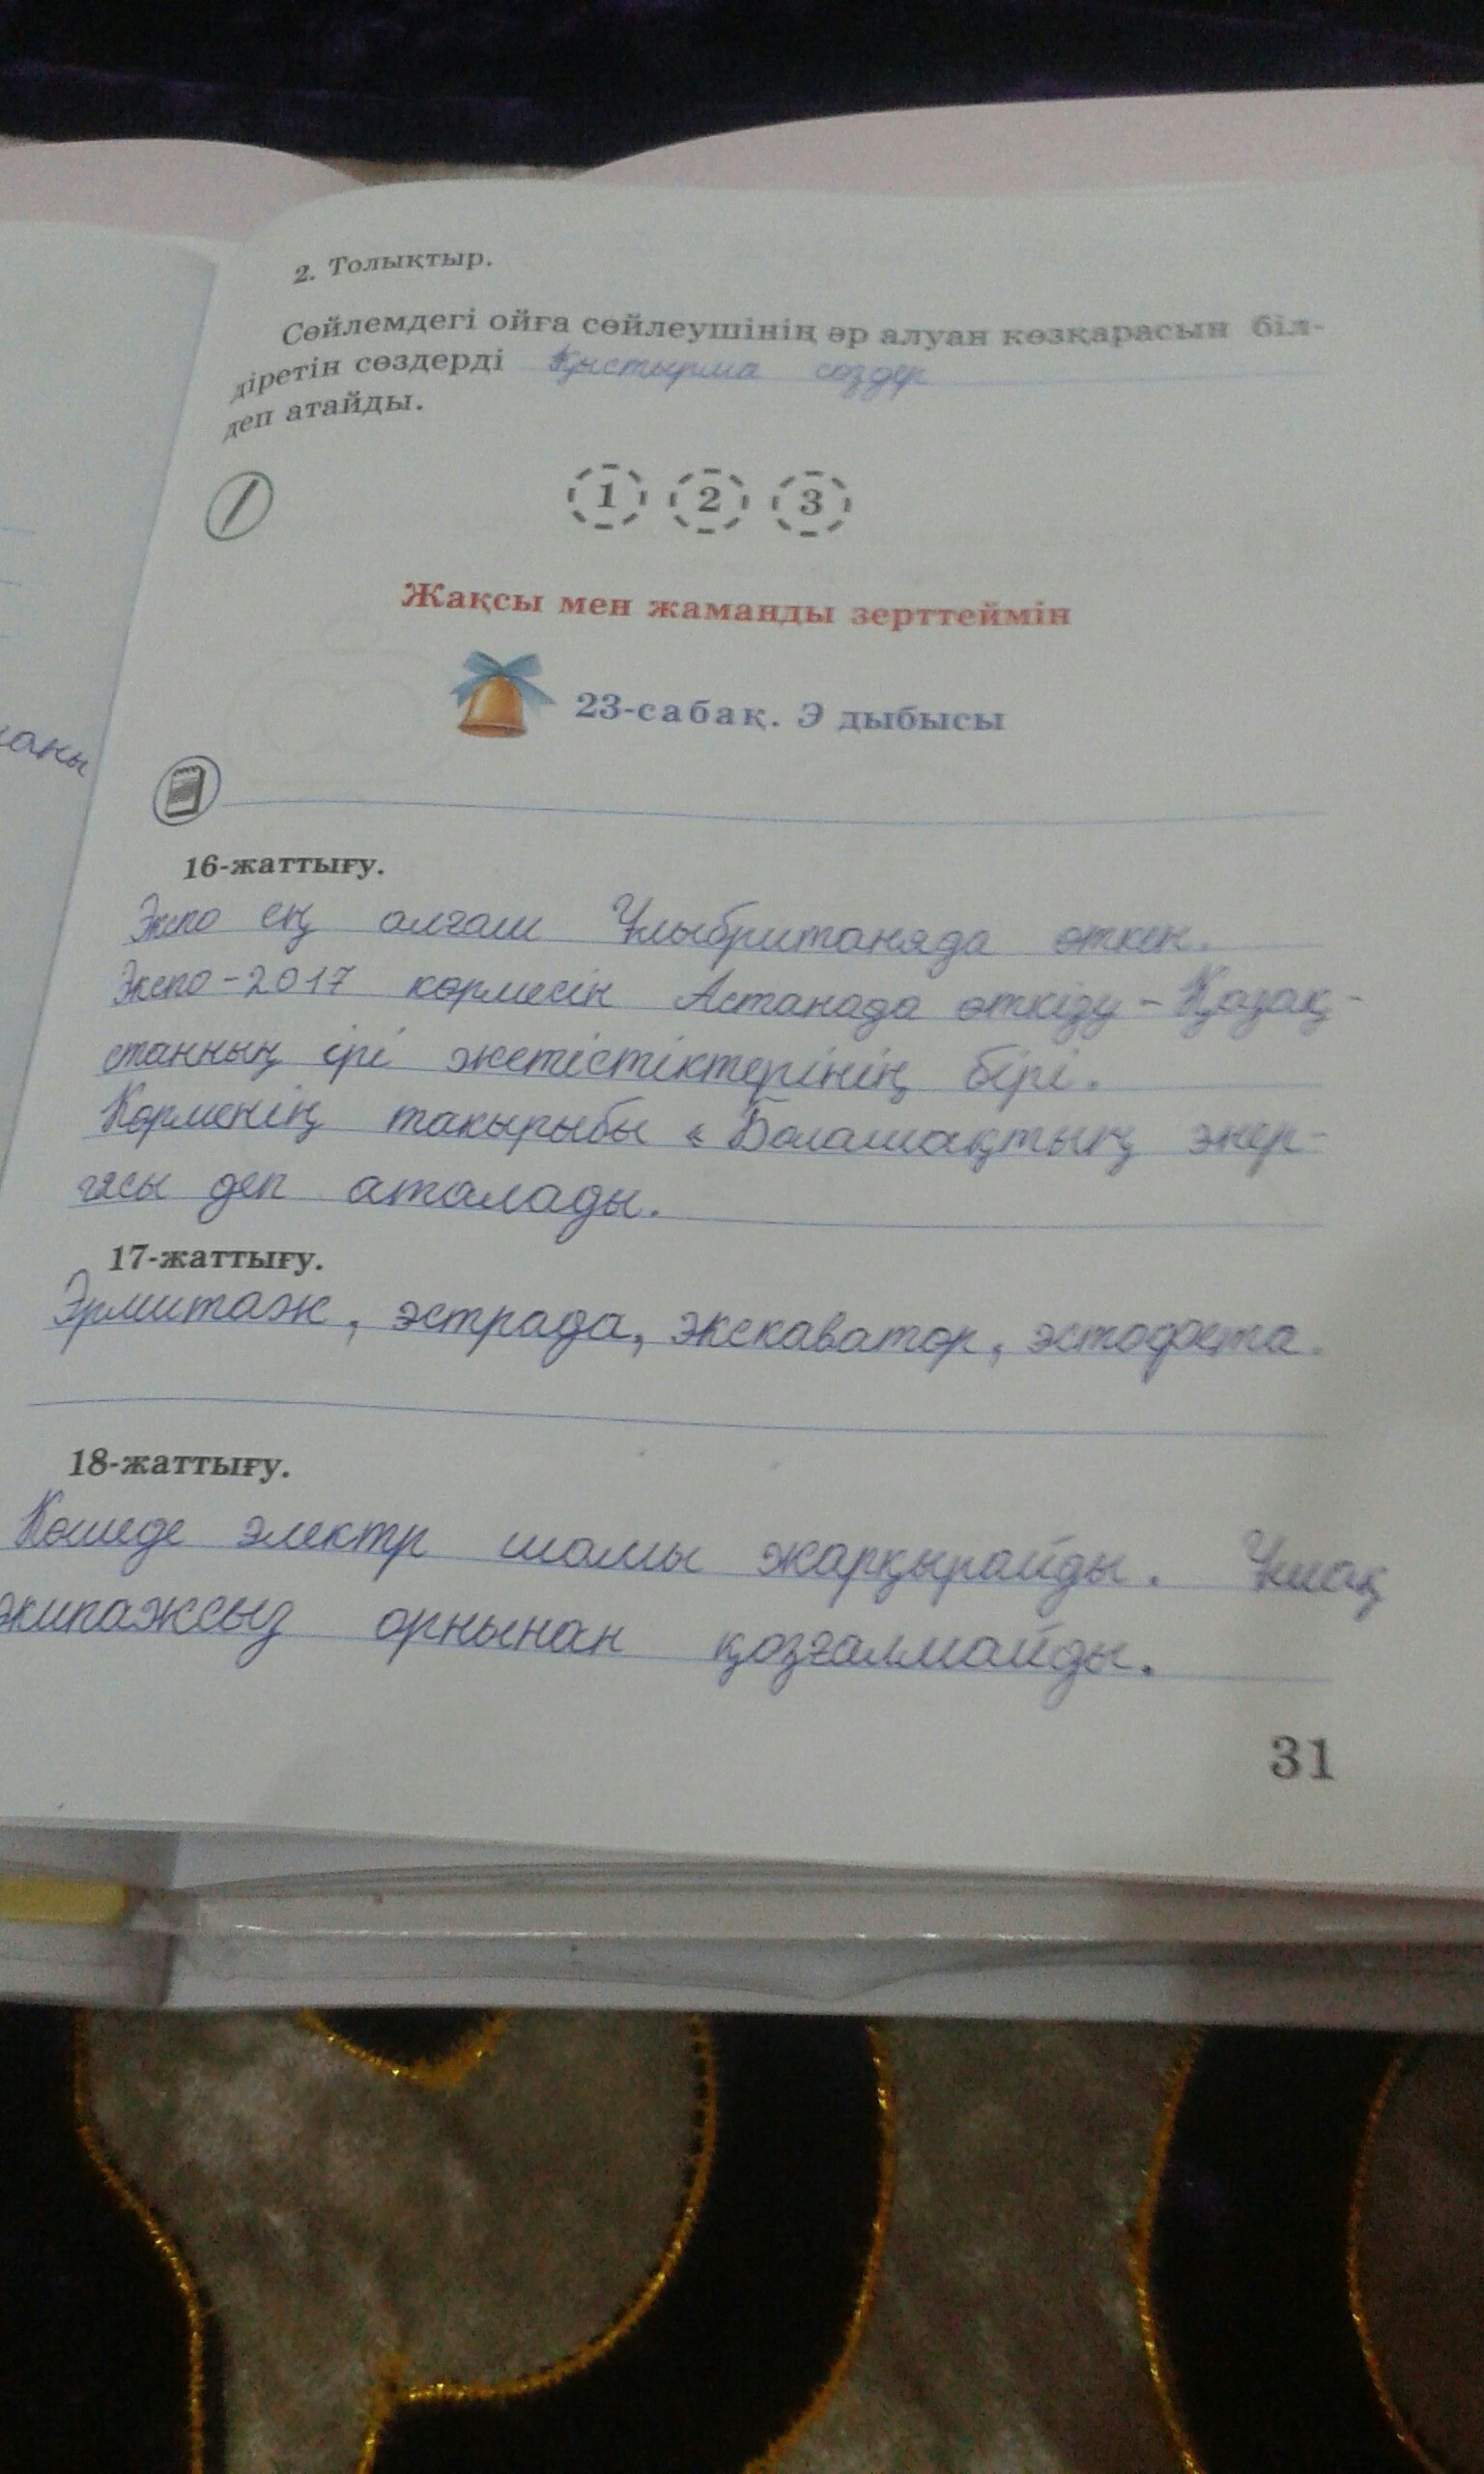 2. Толықтыр.
Сөйлемдегі ойға сөйлеушінің әр алуан көзқарасын біл-
діретін сөздерді Қыстырма сөздер
деп атайды.
1 2 3
Жақсы мен жаманды зерттеймін
23-сабақ. Э дыбысы
ианы
16-жаттығу.
Экпо ең алғаш Ұлыбританяда өткен.
Экспо-2017 көрмесін Астанада өткізу - Қазақ-
станның ірі жетістіктерінің бірі.
Көрменің такырыбы « Болашақтың энер-
гясы деп аталады.
17-жаттығу.
Эрмитаж, эстрада, экскаватор,
18-жаттығу.
Көшеде электр шамы жарқырайды. Ұшақ
экипажсыз орнынан қозғалмайды.
31